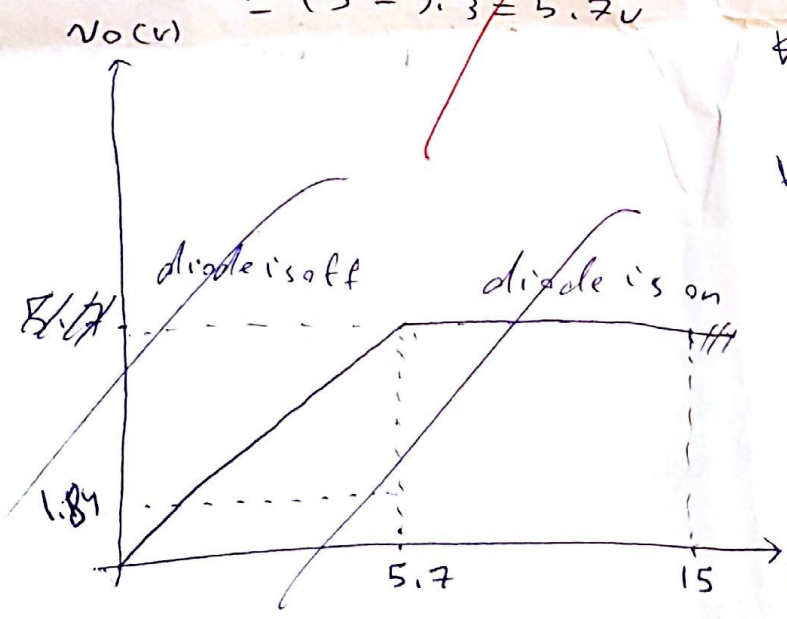 = 5.7v
Vo(v)
diode is off
diode is on
1.84
5.7
15